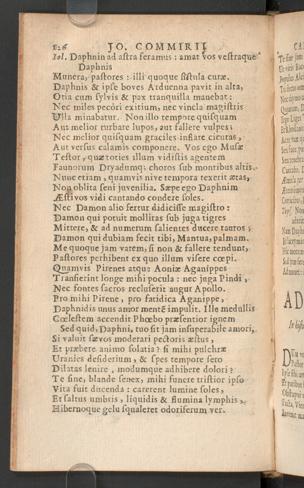 126 JO. COMMIRII
Iol. Daphnin ad astra feramus: amat vos vestraque
Daphnis
Munera, pastores: illi quoque fistula curæ.
Daphnis & ipse boves Arduenna pavit in alta,
Otia cum sylvis & pax tranquilla manebat:
Nec miles pecori exitium, nec vincla magistris
Ulla minabatur. Non illo tempore quisquam
Aut melior turbare lupos, aut fallere vulpes;
Nec melior quisquam graciles inflare cicutas,
Aut versus calamis componere. Vos ego Musæ
Testor, quæ toties illum vidistis agentem
Faunorum Dryadumq; choros sub montibus altis.
Nunc etiam, quamvis nive tempora texerit ætas,
Non oblita seni juvenilia. Sæpe ego Daphnim
Æstivos vidi cantando condere soles.
Nec Damon alio fertur didicisse magistro:
Damon qui potuit mollitas sub juga tigres
Mittere, & ad numerum salientes ducere tauros;
Damon cui dubiam fecit tibi, Mantua, palmam.
Me quoque jam vatem, si non & fallere tendunt,
Pastores perhibent ex quo illum visere cœpi.
Quamvis Pirenes atque Aoniæ Aganippes
Transierint longe mihi pocula: nec juga Pindi,
Nec fontes sacros reluserit augur Apollo.
Pro mihi Pirene, pro fatidica Aganippe,
Daphnidis unus amor mentẽ impulit. Ille medullis
Cœlestem accendit Phœbo præsentior ignem
Sed quid, Daphni, tuo fit jam insuperabile amori,
Si valuit sævos moderati pectoris æstus,
Et præbere animo solatia? si mihi pulchræ
Uranies desiderium, & spes tempore sero
Dilatas lenire, modumque adhibere dolori?
Te sine, blande senex, mihi funere tristior ipso
Vita fuit ducenda: carerent lumine soles,
Et saltus umbris, liquidis & flumina lymphis,
Hibernoque gelu squaleret odoriferum ver.